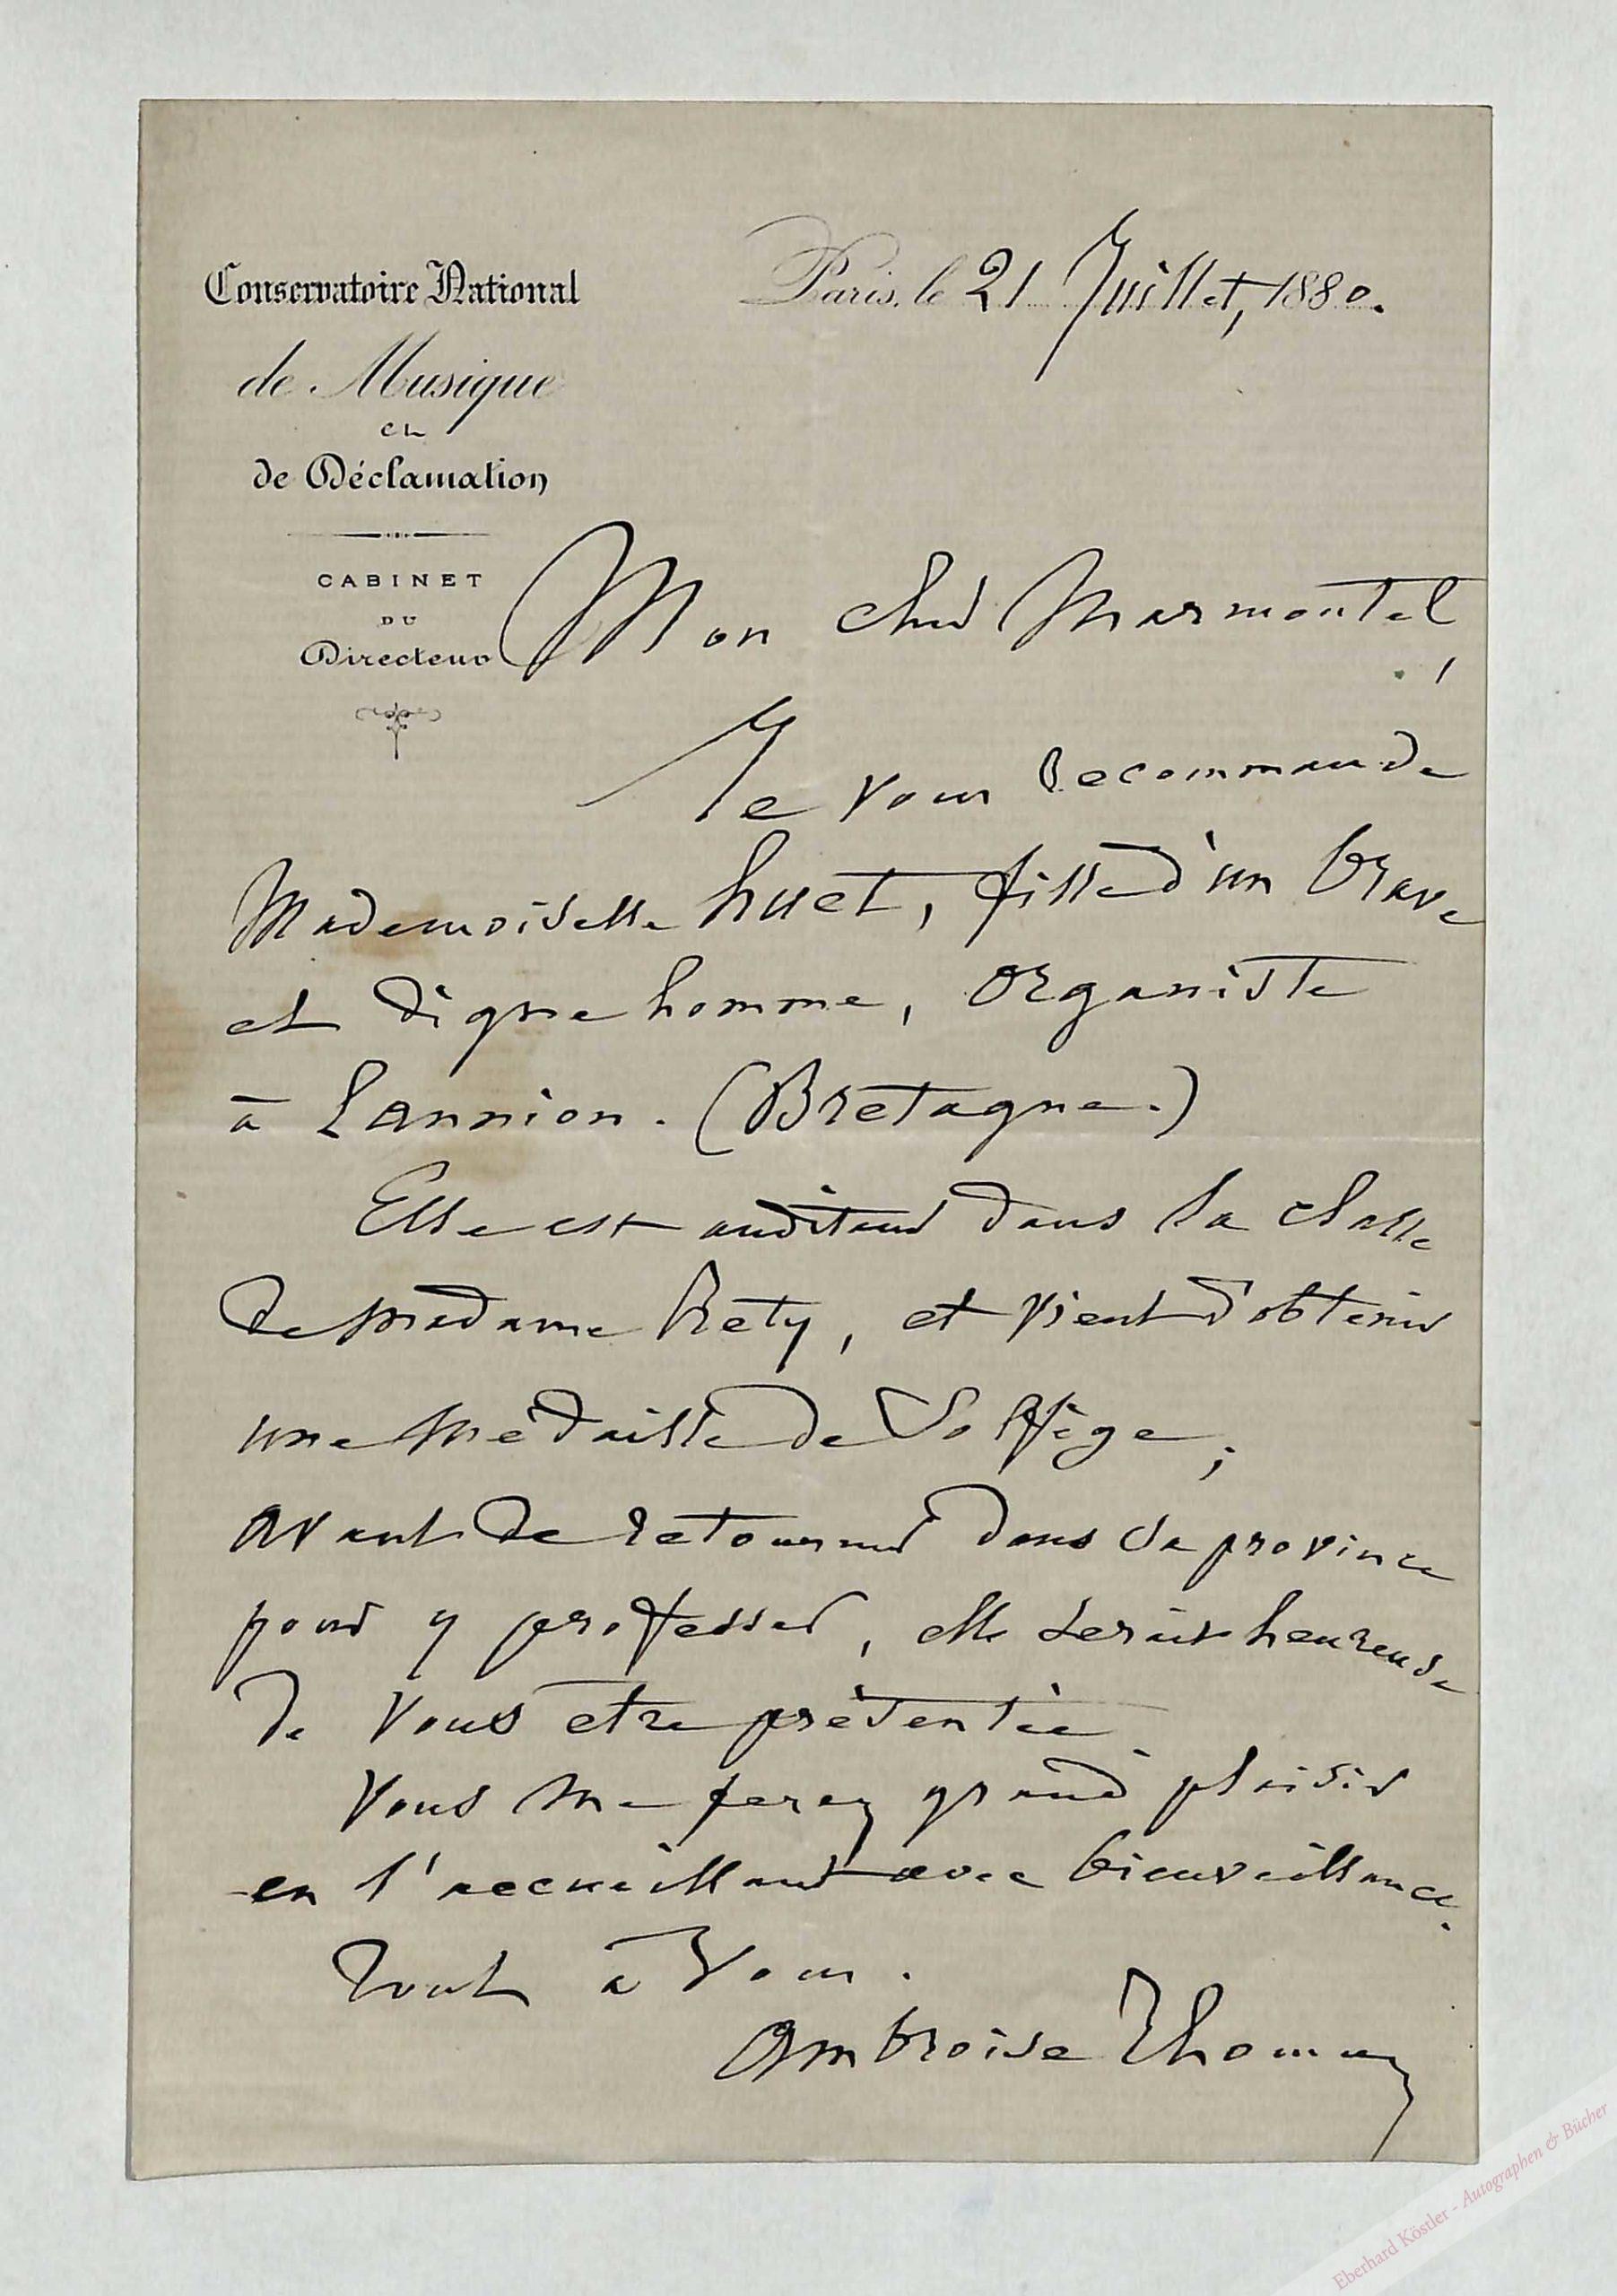 Conservatoire National
de Musique
et
de Déclamation
CABINET
DU
Directeur
Paris, le 21 Juillet, 1880.
Mon cher Marmontel,
Je vous recommande
Mademoiselle huet, fille d'un brave
et digne homme, organiste
à Lannion. (Bretagne.)
Elle est auditeur dans la classe
de Madame Réty, et vient d'obtenir
une médaille de Solfège;
avant de retourner dans sa province
pour y professer, elle serait heureuse
de vous etre présentée
Vous me ferez grand plaisir
en l'accueillant avec bienveillance.
Tout à Vous.
Ambroise Thomas
Eberhard Köstler - Autographen & Bücher